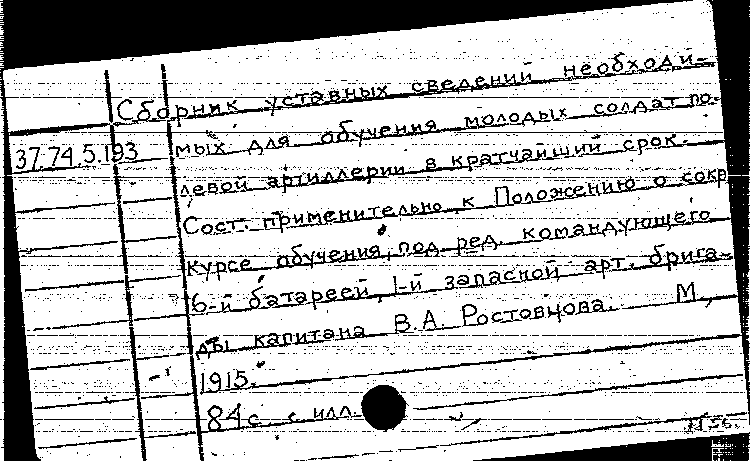 Сборник уставных сведений необходи-
37.74.5.193 мых для обучения молодых солдат по-
левой артиллерии в кратчайший срок.
Сост. применительно к Положению о сокр
курсе обучения, под ред. командующего
6-й батареей, 1-й запасной арт. брига-
ды капитана В.А. Ростовцова. М.,
1915.
84 с. с илл.